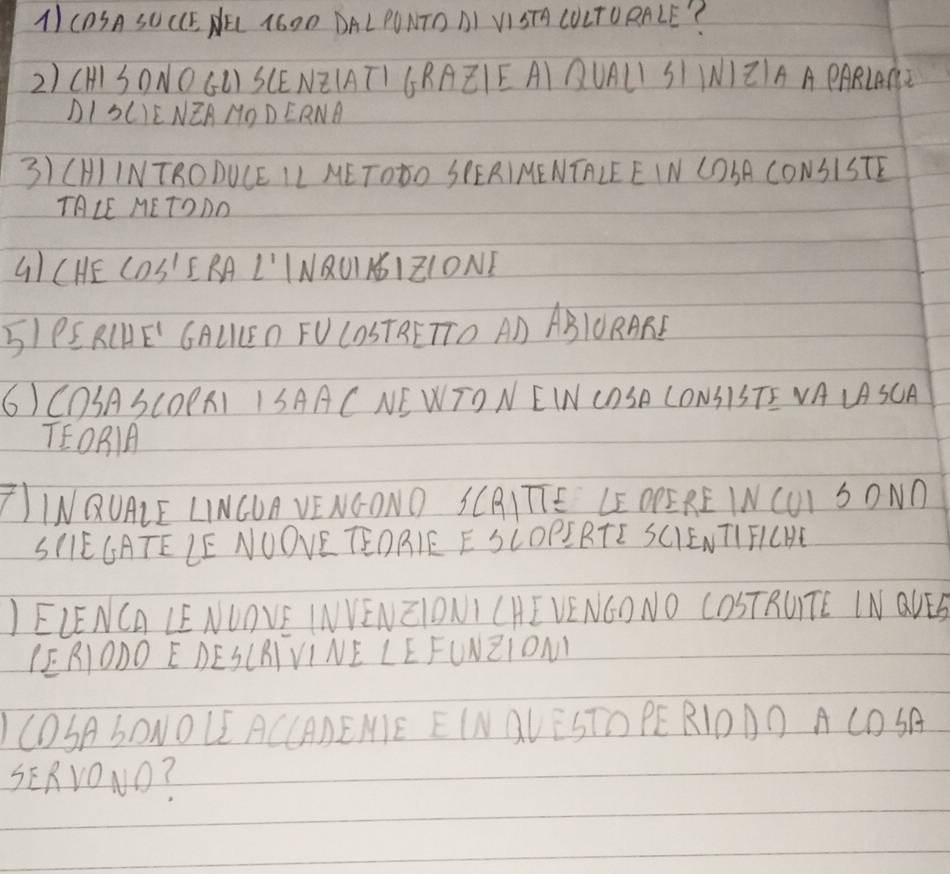 1) COSA SUCCE NEL 1600 DAL PUNTO DI VISTA CULTURALE?
2) CHI SONO GLI SCENZIATI GRAZIE AI QUALI SI INIZIA A PARLARE
DI SCIENZA MODERNA
3) CHI INTRODUCE IL METODO SPERIMENTALE E IN COSA CONSISTE
TALE METODO
4) CHE COS'ERA L'INQUISIZIONE
5) PERCHE' GALILEO FU COSTRETTO AD ABIURARE
6) COSA SCOPRI ISAAC NEWTON E IN COSA CONSISTE VA LA SUA
TEORIA
7) IN QUALE LINGUA VENGONO SCRITTE LE OPERE IN CUI SONO
SPIEGATE LE NUOVE TEORIE E SCOPERTE SCIENTIFICHE
) ELENCA LE NUOVE INVENZIONI CHE VENGONO COSTRUITE IN QUES
PERIODO E DESCRIVINE LE FUNZIONI
) COSA SONO LE ACCADEMIE E IN QUESTO PERIODO A COSA
SERVONO?